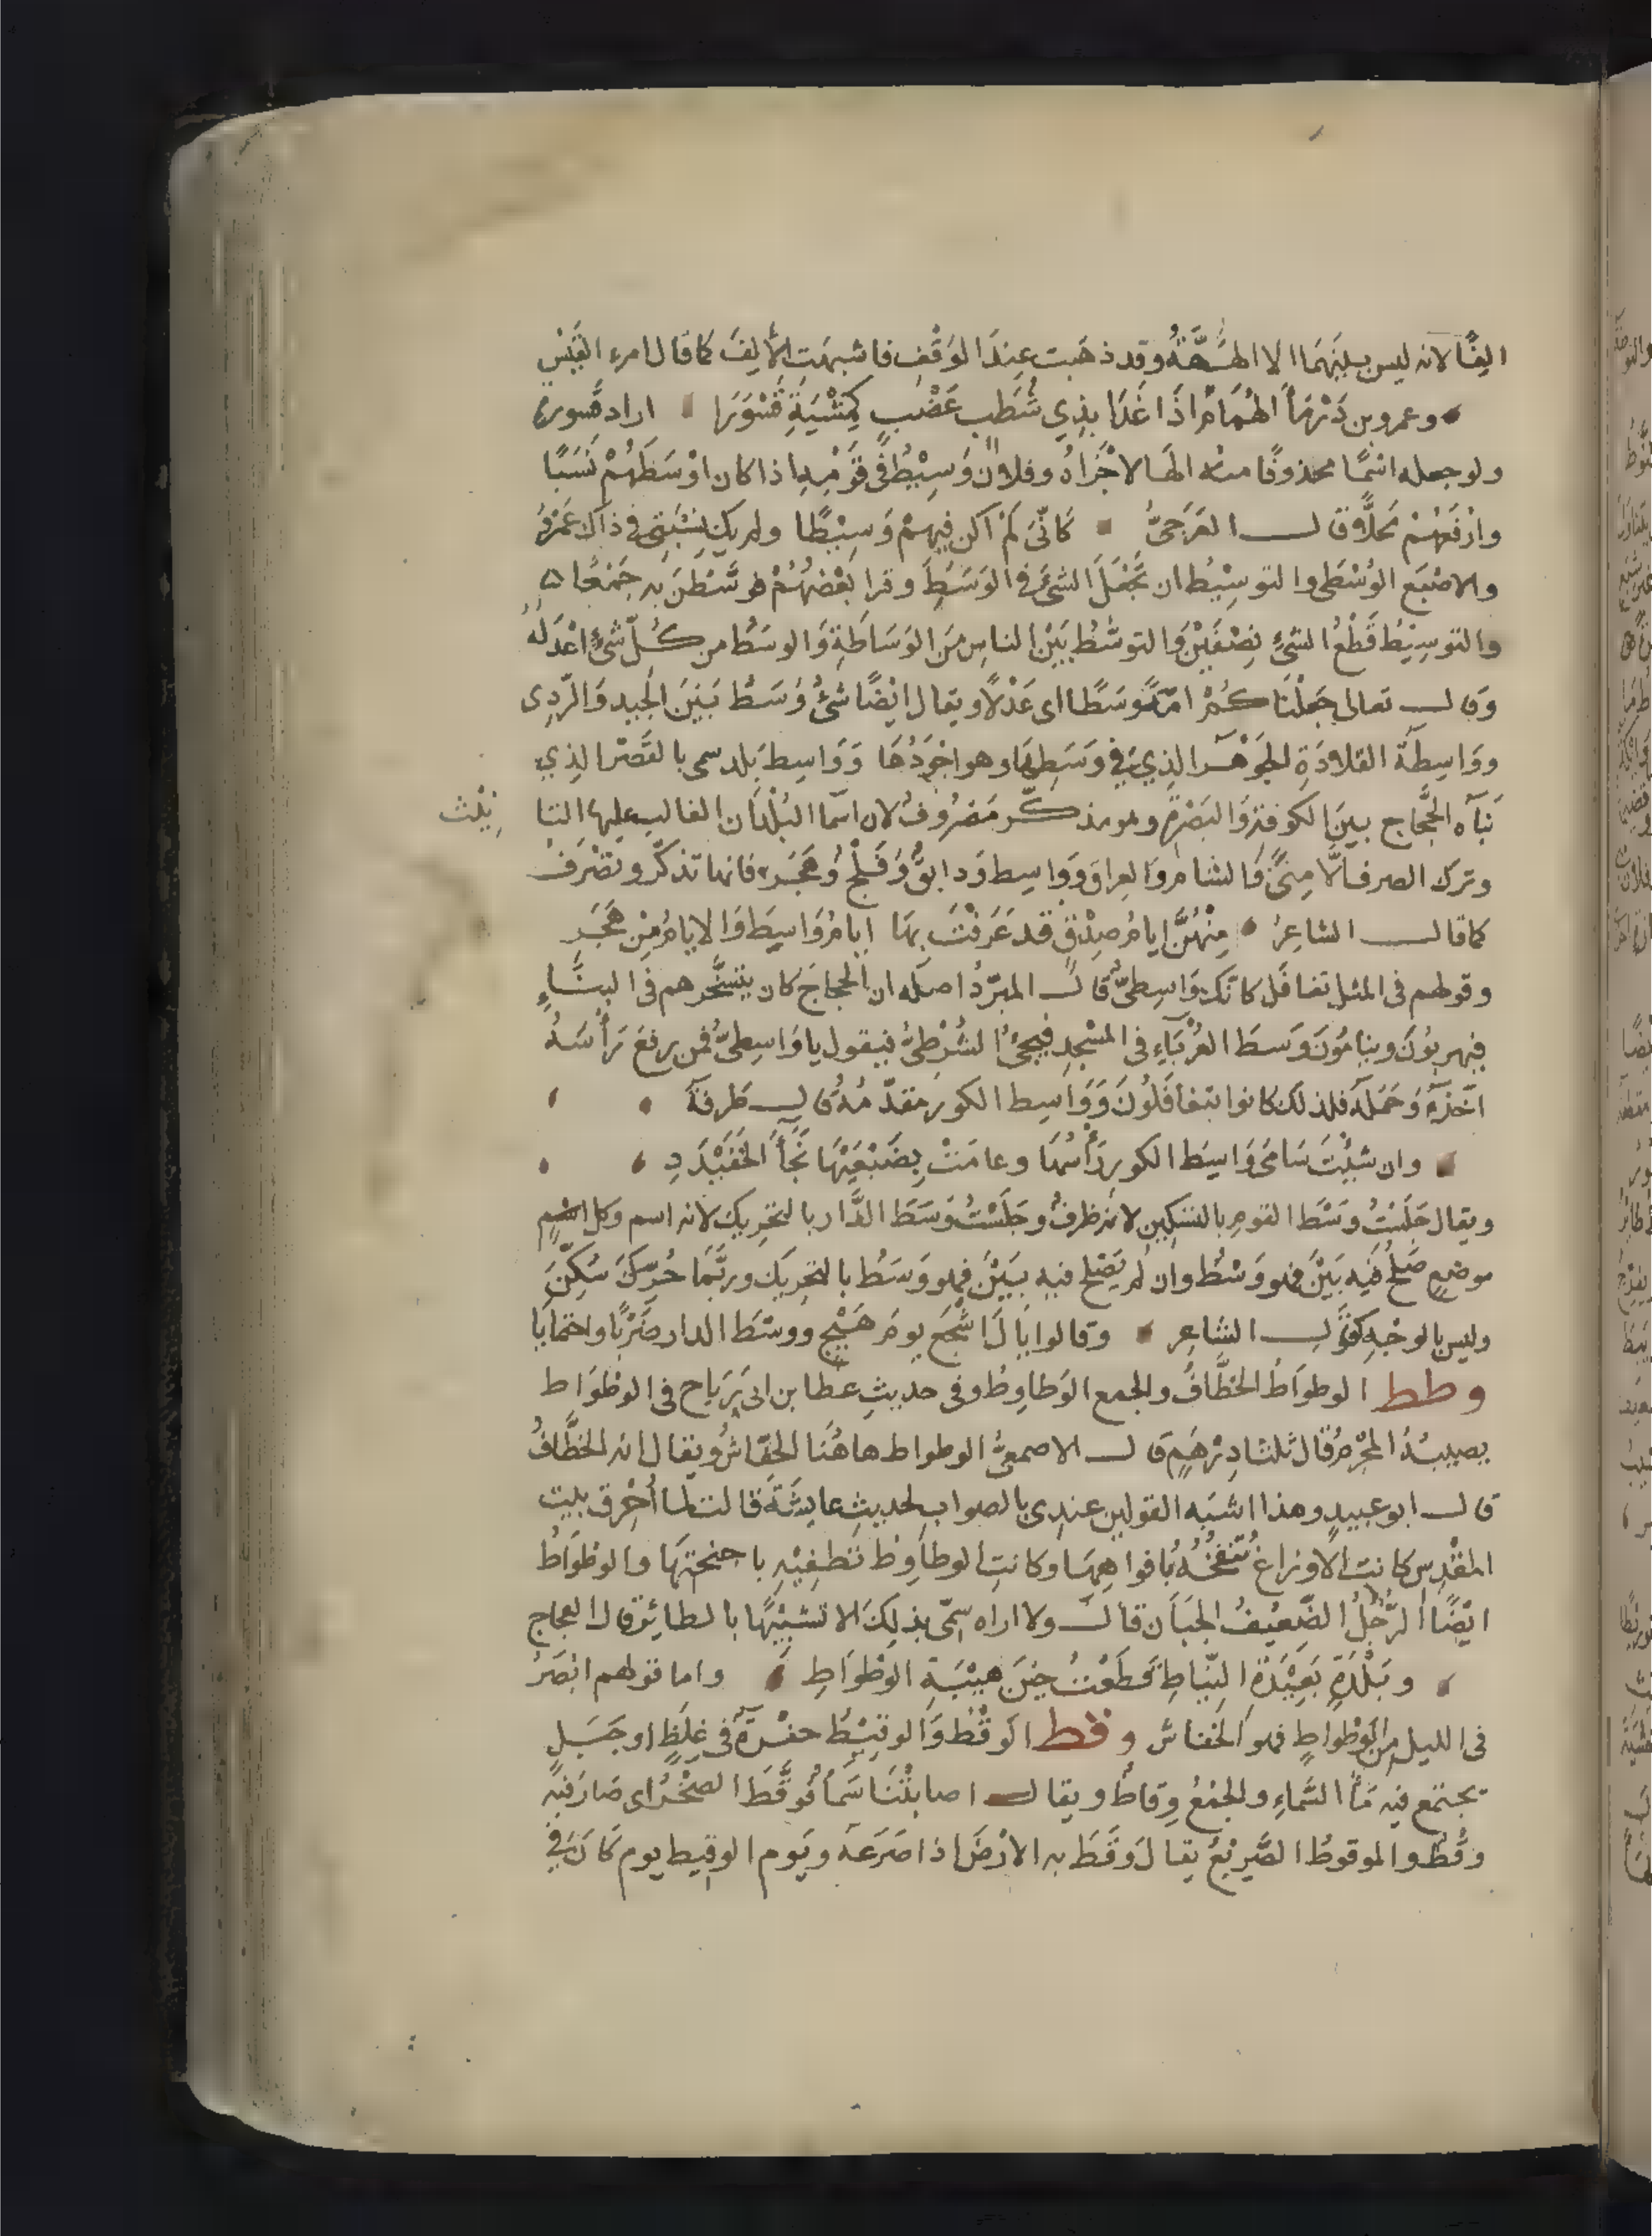 الفًا لانه ليس بينهما الا الهَهَّةُ وقد ذهبت عند الوَقْفِ فاشبهت الأَلِفَ كما قال امرء القَيْسِ
وعمرو بن دَرْمَاَ الهُمَامُ اذَا غَدَا بذِي شُطَبٍ عَضْبٍ كمِشْيَةِ قَسْوَرَا اراد قسورة
ولو جعله اسمًا محذوفًا منه الهَا لاجْرَاهُ وفلان وَسِيْطٌ في قَوْمِهِ اذا كان اوْسَطَهُمْ نَسَبًا
وارْفَعَهُمْ مَحَلًّا قال العَرَجيُّ كَانّىَ لَمْ اكن فيهِمْ وَسِيْطًا ولم يك نِسْبَتِى في ذاك عَمْرُ
والاصْبَع الوُسْطَى والتوسِيْطُ ان تَجْعَلَ الشىَ في الوَسَطِ وقرا بَعْضُهُمْ فَوَسَّطْنَ به جَمْعًا ه
والتوسِيْطُ قَطْعُ الشىءِ نِصْفَيْنِ وَالتوسُّطُ بَيْنَ الناسِ مِنَ الوَسَاطَةِ وَالوسَطُ من كُلّ شىءٍ اعْدَلُهُ
وقال تعالى جَعَلْنَا كُمْ امّةً وَسَطًا اى عَدْلًا ويقال ايْضًا شىءٌ وَسَطٌ بَيْنَ الجيد وَالرّدِى
ووَاسِطَة القلادَةِ الجَوْهَر الذِي في وَسَطِهَا وهو اجْوَدُهَا وَوَاسِط بَلد سمى بالقَصْر الذِي
بَنَاه الحَجّاج بينَ الكوفةِ وَالبَصْرة وهو مذكّر مَصْرُوفٌ لان اسمَا البُلْدَان الغالب عليها التا نِيْث
وترك الصرف الَّا مِنىً وَالشامَ وَالعِراقَ وَوَاسِط وَدابقٌ وَفَلْجٌ وَهَجَر فانها تذكّر وتصْرَفُ
كما قال الشاعِرُ مِنْهُنَّ ايامُ صِدْقٍ قد عَرَفْتَ بِهَا ايامُ وَاسِطَ وَالايامُ مِنْ هَجَرِ
وقولهم فى المثل تغافَل كانّك وَاسِطىٌّ قال المبرّدُ اصله ان الحجاجَ كان يتسَخَّرهم فى البِنَاءِ
فيهربُونَ وينامُونَ وَسَط الغُرَبَآءِ في المسْجِدِ فيجىُٔ الشُرْطىُّ فيقول يا وَاسِطىُّ فمن رفعَ رَأسَهُ
اخَذَهُ وَحَمَلَه فلذلك كانوا يتغافَلُونَ وَوَاسِط الكور مقدّمُهُ قال طَرفَة
وان شِيْتَ سَامَى وَاسِطَ الكورِ رَأْسُهَا وعامَتْ بِضَبْعَيْهَا نَجَأَ الخَفَيْدَدِ
ويقال جَلَسْتُ وسْطَ القومِ بالتسْكِينِ لانه ظرفٌ وجَلَسْتُ وَسَطَ الدَّار بالتحرِيك لانه اسم وكل اسْمٍ
موضعٍ صَلحَ فيه بَيْنَ فهو وَسْطٌ وان لم يَصْلح فيه بَيْنَ فهو وَسَطٌ بالتحرِيك وربّمَا حُرّكَ سَكّنَ
وليس بالوَجْهِ كقَوْلِ الشاعِر وقالوا يالَ اشْجَعَ يومَ هَيْجٍ ووسْطَ الدار ضَرْبًا واحتمايَا
وطط الوطوَاطُ الخطَّافُ والجمع الوَطاوِطُ وفى حديثِ عطا بن ابى رَبَاح فى الوطْوَاط
يصيبُهُ المحْرِمُ قال ثلثا دِرْهَمٍ قال الاصمعىُّ الوطواط هاهُنَا الخفّاشُ ويقال انه الخطَّافُ
قال ابو عبيدٍ وهذا اشبَه القولين عندِى بالصواب لحديثِ عايشَةَ قالت لما أُحْرِق بيت
المقْدِس كانت الاوزاغُ تنْفخُهُ بافواهِهَا وكانتِ الوطاوِط تطْفِيْهِ باجنحتِهَا والوطْوَاطُ
ايْضًا الرَّجُلُ الضّعِيْفُ الجبَانُ قال ولا اراه سمّى بذلِكَ الا تشبيْهًا بالطائر قال العجاج
وبَلْدَةٍ بَعِيْدَةِ النّيَاطِ قطَعْتُ حِيْنَ هَيْبَةِ الوطْوَاطِ واما قولهم ابْصَرُ
فى الليل من الوَطْوَاطِ فهو الخفاش وقط الوَقْطُ وَالوقِيْطُ حفْرة فى غِلَظٍ او جَبَلٍ
يجتمع فيه مَآُ السَّمَاءِ والجمْعُ وِقاطٌ ويقال اصابتْنَا سَمَاُ فَوَقَّطَ الصّخْرُ اى صَارَ فيه
وقْطٌ والموقوطُ الصَّرِيْعُ يقال وَقَطَ به الارْضَ اذا صَرَعَه ويَوم الوقِيط يوم كَانَ في